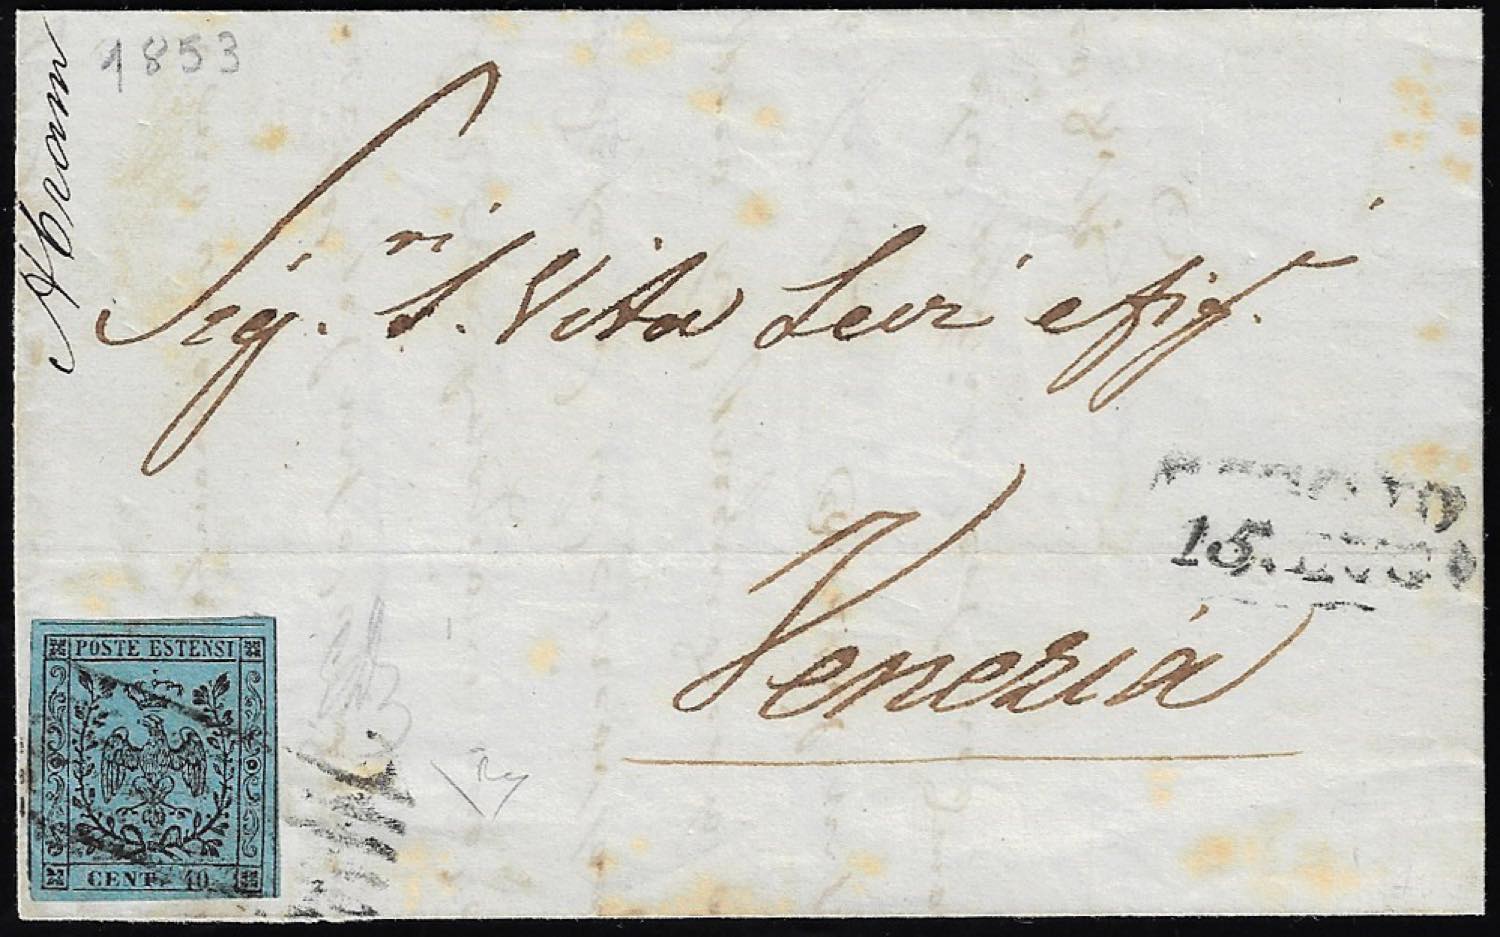 1853
Abram
Sig.ri S. Vita Levi e fig.
Venezia
15. LUG
POSTE ESTENSI
CENT. 40